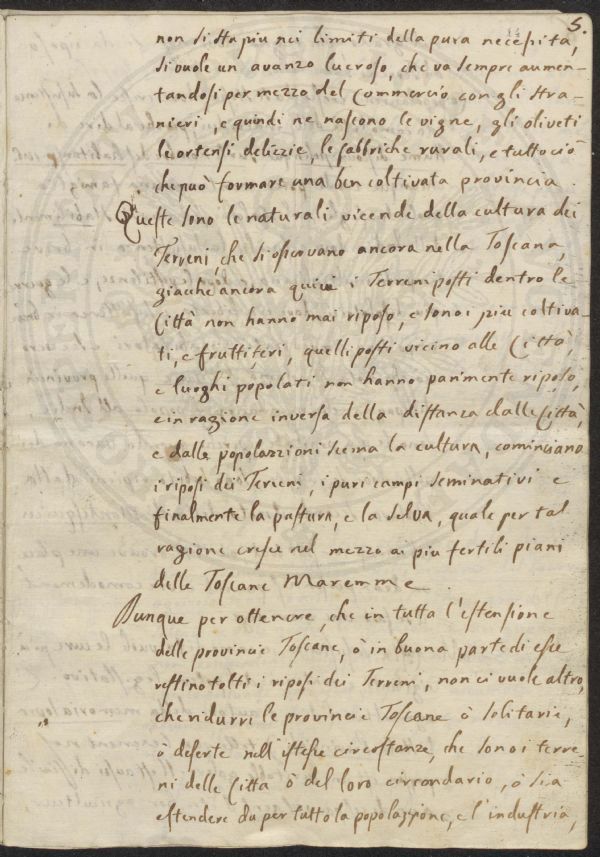 5.
non si sta piu nei limiti della pura necessità,
si vuole un avanzo lucroso, che va sempre aumen-
tandosi per mezzo del Commercio con gli stra-
nieri, e quindi ne nascono le vigne, gli oliveti
le ortensi delizie, le fabbriche rurali, e tutto ciò
che può formare una ben coltivata provincia.
Queste sono le naturali vicende della cultura dei
Terreni, che si osservano ancora nella Toscana,
giacchè ancora quivi i Terreni posti dentro le
Città non hanno mai riposo, e sono i piu coltiva-
ti, e fruttiferi, quelli posti vicino alle Città,
e luoghi popolati non hanno parimente riposo,
e in ragione inversa della distanza dalle Città,
e dalle popolazzioni scema la cultura, cominciano
i riposi dei Terreni, i puri campi seminativi e
finalmente la pastura, e la selva, quale per tal
ragione cresce nel mezzo ai piu fertili piani
delle Toscane Maremme.
Dunque per ottenere, che in tutta l'estensione
delle provincie Toscane, ò in buona parte di esse
restino tolti i riposi dei Terreni, non ci vuole altro,
che ridurre le provincie Toscane ò solitarie,
ò deserte nell'istesse circostanze, che sono i terre-
ni delle Città ò del loro circondario, ò sia
estendere da per tutto la popolazzione, e l'industria,